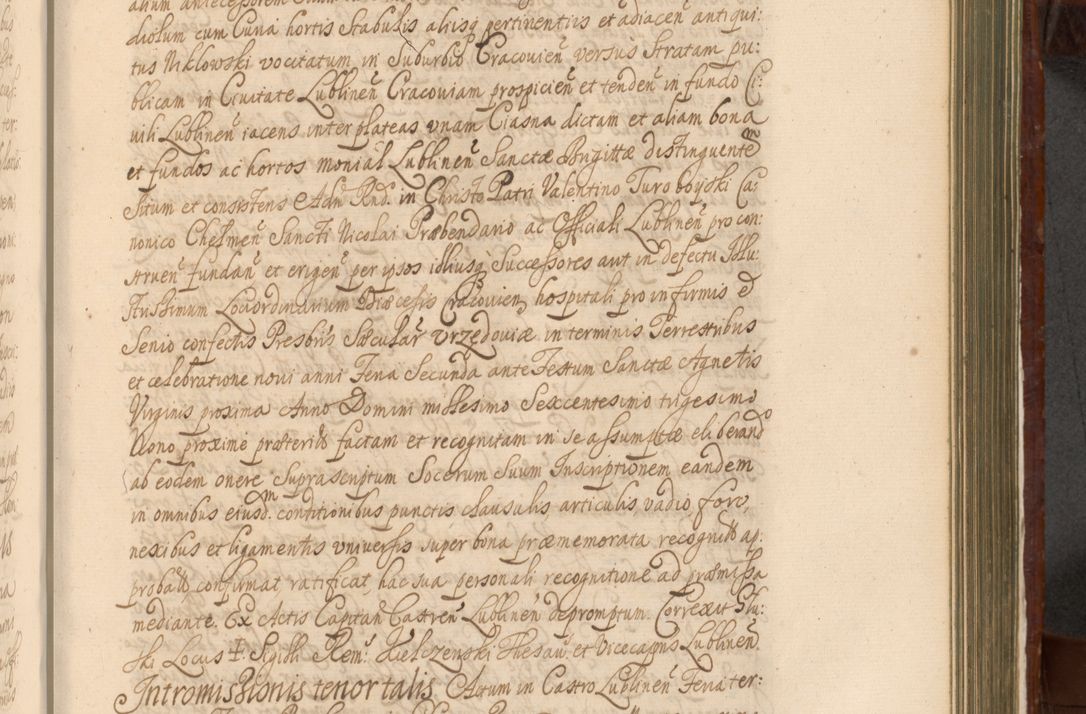 diolum cum Curia hortis Stabulis aliisq pertinentiis et adiacen antiqui:
tus Niklowski vocitatum in Suburbio Cracovien versus Stratam pu:
blicam in Civitate Lublinen Cracoviam prospicien et tenden in fundo Ci:
vili Lublinen iacens inter plateas unam Ciasna dictam et aliam bona
et fundos ac hortos monial Lublinen Sanctæ Brigittæ distinguentem
Situm et consistens Adm Rnd. in Christo Patri Valentino Turoboyski Ca:
nonico Chelmen Sancti Nicolai Præbendario ac Officiali Lublinen pro con:
struen fundan et erigen per ipsos illiusq Successores aut in defectu Illu:
strissimum Locordinarium Diœcesis Cracovien hospitali pro infirmis et
Senio confectis Presbris Sæcular Urzędoviæ in terminis Terrestribus
et celebratione novi anni Feria Secunda ante Festum Sanctæ Agnetis
Virginis proxima Anno Domini millesimo Sexcentesimo trigesimo
Nono proxime præterito factam et recognitam in se assumptæ eliberando
ab eodem onere Suprascriptum Socerum Suum Inscriptionem eandem
in omnibus eiusdm. conditionibus punctis clausulis articulis vadio foro,
nexibus et ligamentis universis super bona præmemorata recognitis ap:
probatis confirmat, ratificat, hac sua personali recognitione ad præmissa
mediante. Ex Actis Capitan Castren Lublinen depromptum. Correxit
ski Locus ‡ Sigilli Rem. Kielczenski Thesau. et Vicecapus Lublinen.
Intromissionis tenor talis Actum in Castro Lublinen Feria ter: